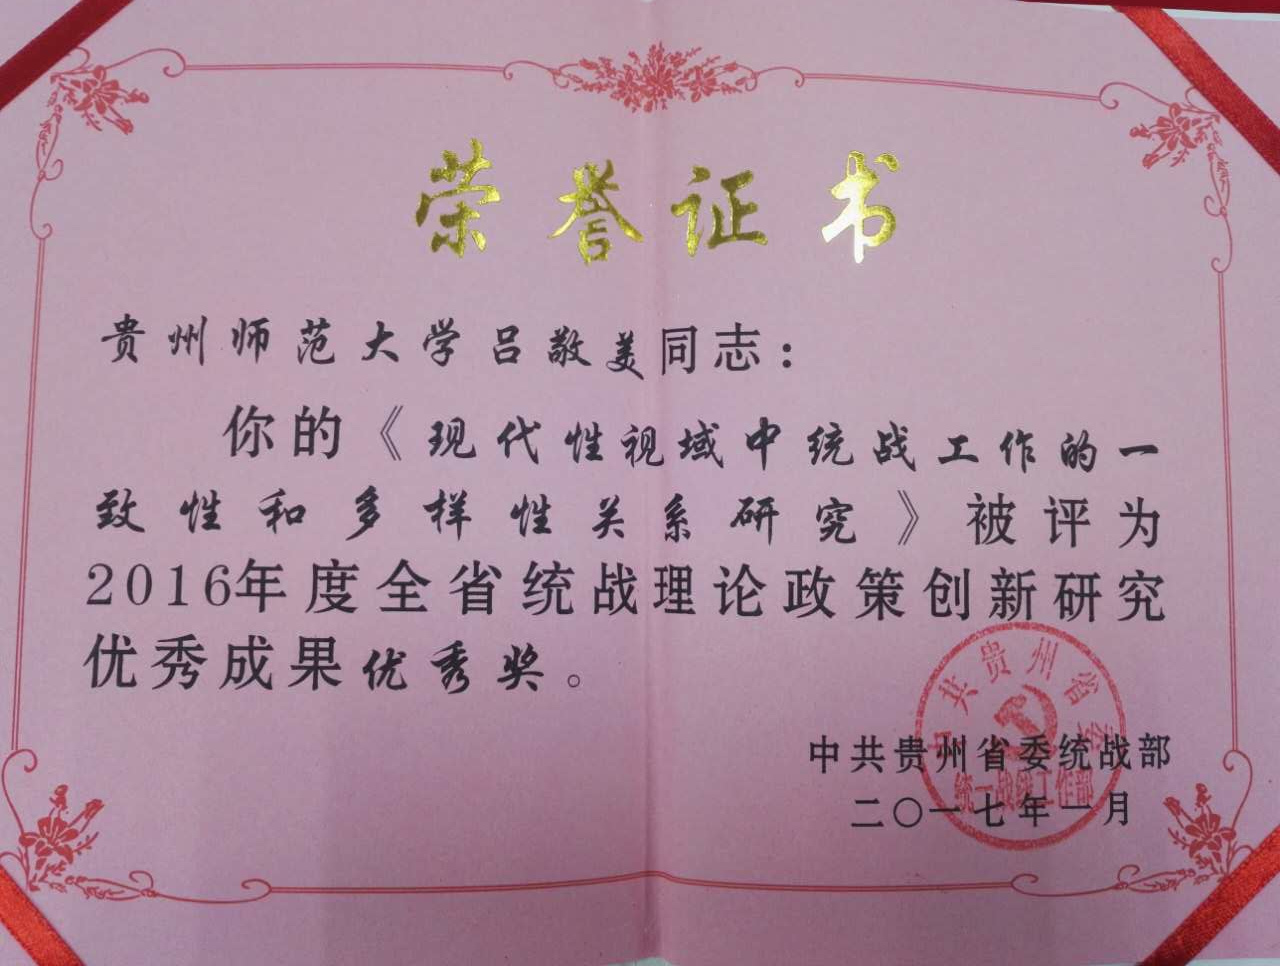 荣誉证书
贵州师范大学吕敬美同志：
你的《现代性视域中统战工作的一
致性和多样性关系研究》被评为
2016年度全省统战理论政策创新研究
优秀成果优秀奖。
中共贵州省委统战部
二〇一七年一月
中共贵州省委
统一战线工作部